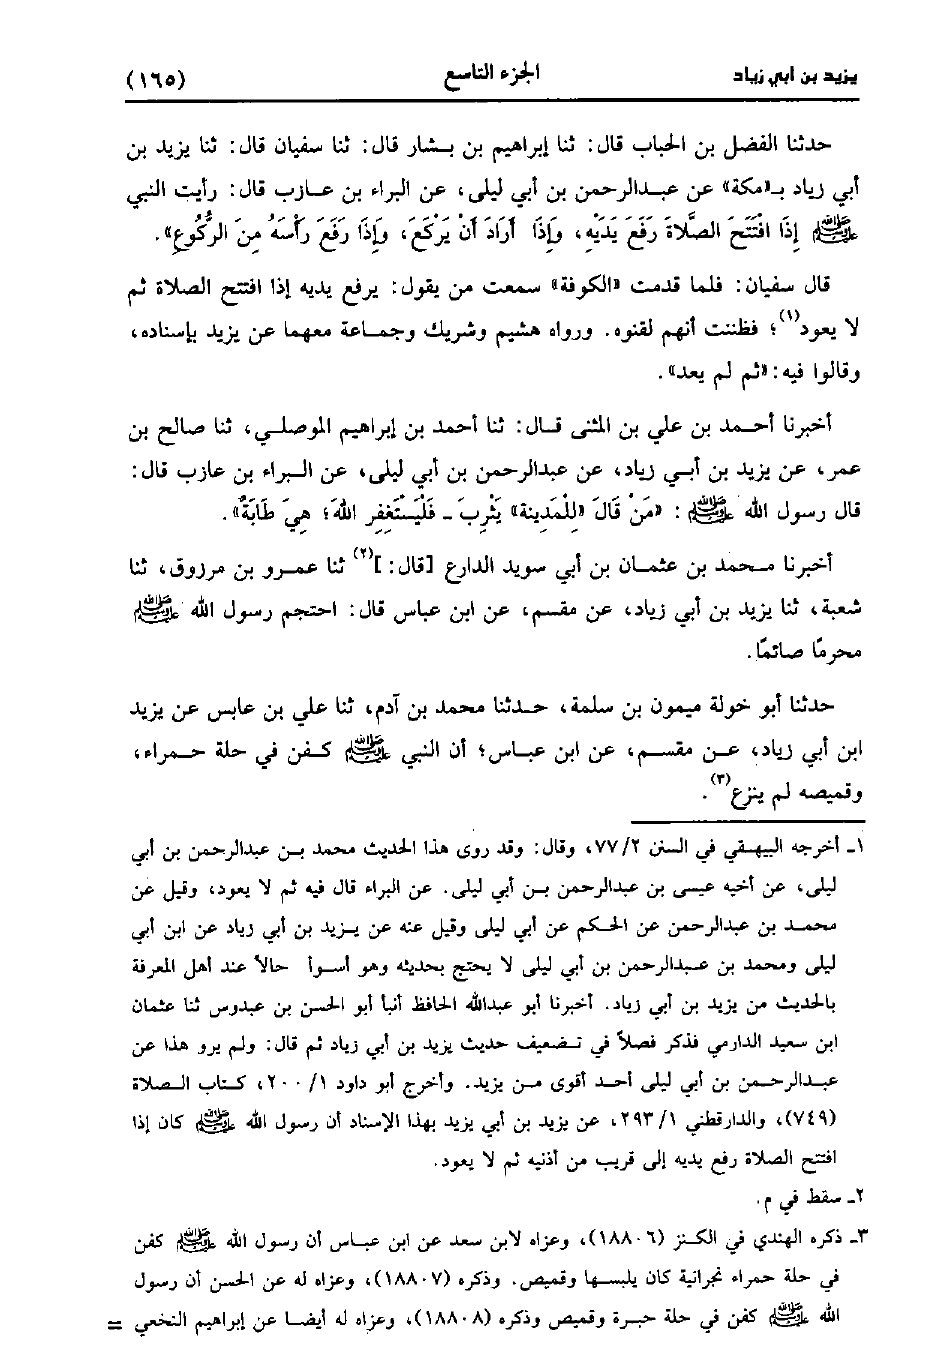 يزيد بن أبي زياد الجزء التاسع (١٦٥)
حدثنا الفضل بن الحباب قال: ثنا إبراهيم بن بشار قال: ثنا سفيان قال: ثنا يزيد بن
أبي زياد بـ«مكة» عن عبدالرحمن بن أبي ليلى، عن البراء بن عازب قال: رأيت النبي
ﷺ إِذَا افْتَتَحَ الصَّلَاةَ رَفَعَ يَدَيْهِ، وَإِذَا أَرَادَ أَنْ يَرْكَعَ، وَإِذَا رَفَعَ رَأْسَهُ مِنَ الرُّكُوعِ».
قال سفيان: فلما قدمت «الكوفة» سمعت من يقول: يرفع يديه إذا افتتح الصلاة ثم
لا يعود(١)؛ فظننت أنهم لقنوه. ورواه هشيم وشريك وجماعة معهما عن يزيد بإسناده،
وقالوا فيه: «ثم لم يعد».
أخبرنا أحمد بن علي بن المثنى قال: ثنا أحمد بن إبراهيم الموصلي، ثنا صالح بن
عمر، عن يزيد بن أبي زياد، عن عبدالرحمن بن أبي ليلى، عن البراء بن عازب قال:
قال رسول الله ﷺ: «مَنْ قَالَ «لِلْمَدِينة» يَثْرِبَ ـ فَلْيَسْتَغْفِرِ اللَّهَ؛ هِيَ طَابَةٌ».
أخبرنا محمد بن عثمان بن أبي سويد الدارع [قال:](٢) ثنا عمرو بن مرزوق، ثنا
شعبة، ثنا يزيد بن أبي زياد، عن مقسم، عن ابن عباس قال: احتجم رسول الله ﷺ
محرمًا صائمًا.
حدثنا أبو خولة ميمون بن سلمة، حدثنا محمد بن آدم، ثنا علي بن عابس عن يزيد
ابن أبي زياد، عن مقسم، عن ابن عباس؛ أن النبي ﷺ كفن في حلة حمراء،
وقميصه لم ينزع(٣).
١ـ أخرجه البيهقي في السنن ٧٧/٢، وقال: وقد روى هذا الحديث محمد بن عبدالرحمن بن أبي
ليلى، عن أخيه عيسى بن عبدالرحمن بن أبي ليلى. عن البراء قال فيه ثم لا يعود، وقيل عن
محمد بن عبدالرحمن عن الحكم عن أبي ليلى وقيل عنه عن يزيد بن أبي زياد عن ابن أبي
ليلى ومحمد بن عبدالرحمن بن أبي ليلى لا يحتج بحديثه وهو أسوأ حالاً عند أهل المعرفة
بالحديث من يزيد بن أبي زياد. أخبرنا أبو عبدالله الحافظ أنبأ أبو الحسن بن عبدوس ثنا عثمان
ابن سعيد الدارمي فذكر فصلاً في تضعيف حديث يزيد بن أبي زياد ثم قال: ولم يرو هذا عن
عبدالرحمن بن أبي ليلى أحد أقوى من يزيد. وأخرج أبو داود ٢٠٠/١، كتاب الصلاة
(٧٤٩)، والدارقطني ٢٩٣/١، عن يزيد بن أبي يزيد بهذا الإسناد أن رسول الله ﷺ كان إذا
افتتح الصلاة رفع يديه إلى قريب من أذنيه ثم لا يعود.
٢ـ سقط في م.
٣ـ ذكره الهندي في الكنز (١٨٨٠٦)، وعزاه لابن سعد عن ابن عباس أن رسول الله ﷺ كفن
في حلة حمراء نجرانية كان يلبسها وقميص. وذكره (١٨٨٠٧)، وعزاه له عن الحسن أن رسول
الله ﷺ كفن في حلة حبرة وقميص وذكره (١٨٨٠٨)، وعزاه له أيضا عن إبراهيم النخعي =